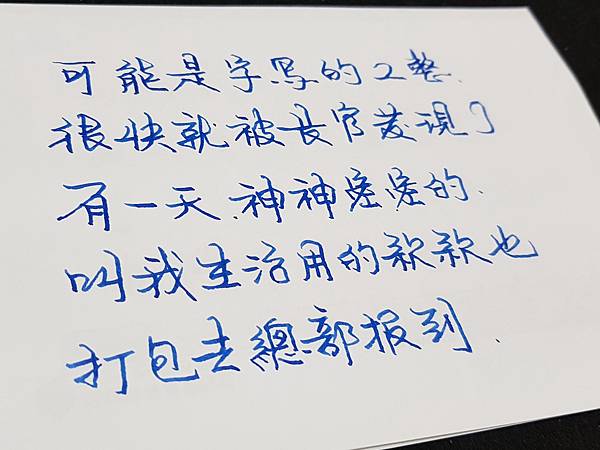 可能是字写的工整.
很快就被長官发現了
有一天.神神密密的.
叫我生活用的款款也
打包去總部报到.